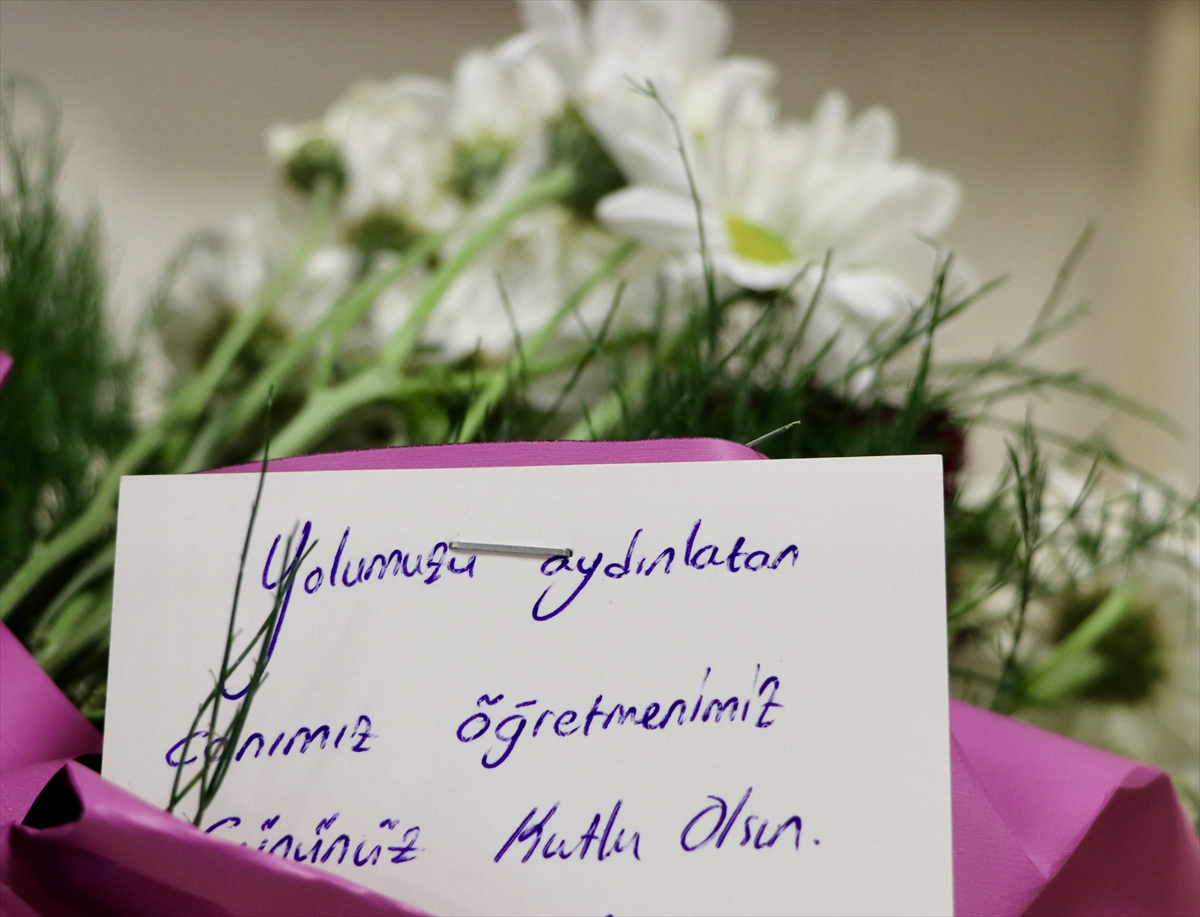 Yolumuzu aydınlatan
canımız öğretmenimiz
Gününüz Kutlu Olsun.